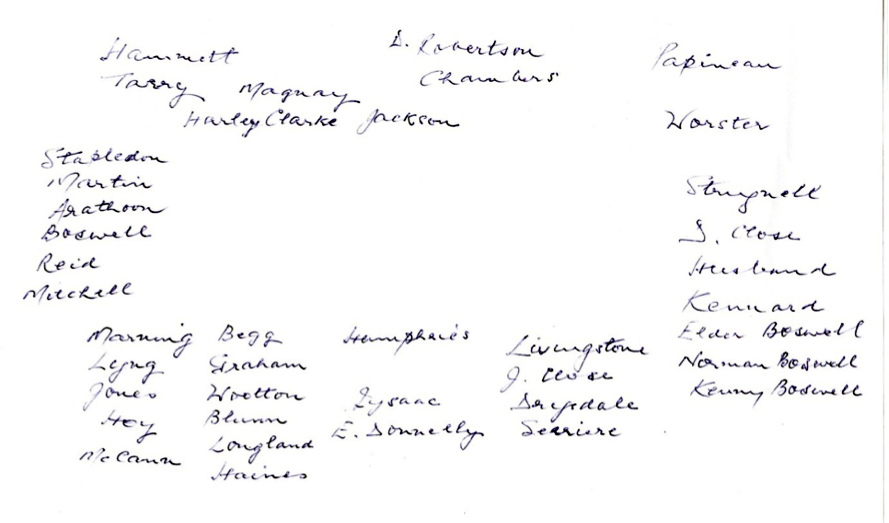 Hammett
Tarry Maquay
D. Robertson
Chambers
Harley Clarke Jackson
Papineau
Worster
Stapledon
Martin
Arathoon
Boswell
Reid
Mitchell
Strugnell
Husband
Kennard
Elder Boswell
Norman Boswell
Kenny Boswell
Marning
Jones
Hoy
McCann
Begg
Graham
Wootton
Blunn
Longland
Haines
Humphries
E. Donnelly
Livingstone
J. Close
Drysdale